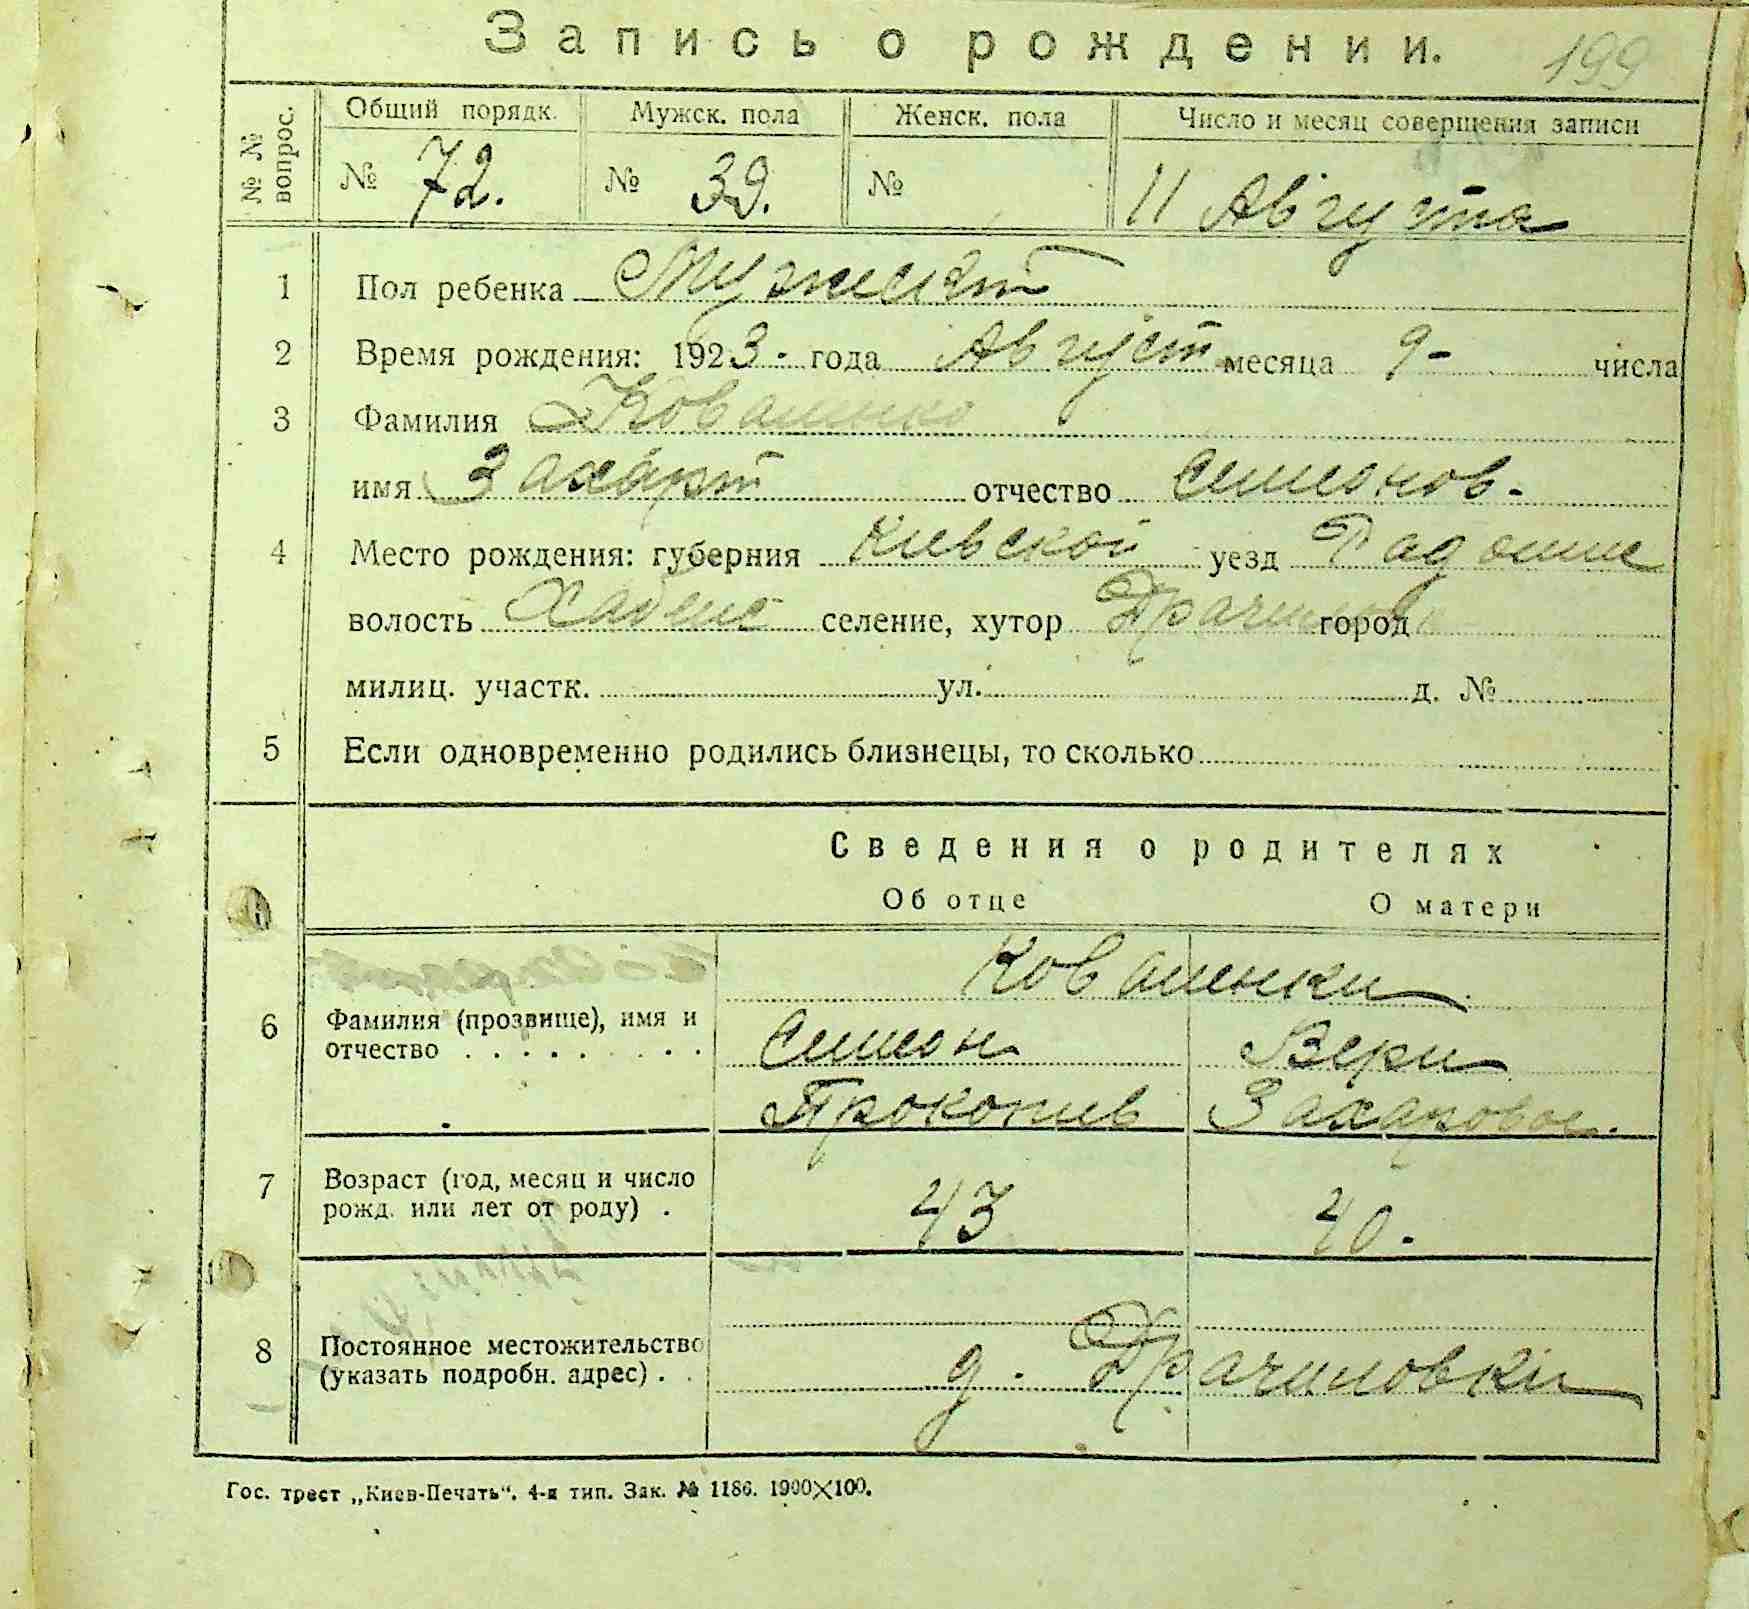 Запись о рождении. 199
№ № вопрос. Общий порядк. Мужск. пола Женск. пола Число и месяц совершения записи
№ 72. № 39. № 11 Августа
1 Пол ребенка Мужеск
2 Время рождения: 1923 года Август месяца 9- числа
3 Фамилия Коваленко
имя Захарт отчество Симонов.
4 Место рождения: губерния Киевской уезд Радомис
волость Хабенс селение, хутор город
милиц. участк. ул. д. №
5 Если одновременно родились близнецы, то сколько
Сведения о родителях
Об отце О матери
Коваленки
6 Фамилия (прозвище), имя и
отчество . . . . . . . . Симон Вери
Прокопив Захаровой.
7 Возраст (год, месяц и число
рожд. или лет от роду) . 43 40.
8 Постоянное местожительство
(указать подробн. адрес) . . д. Драчиловки
Гос. трест „Киев-Печать“. 4-я тип. Зак. № 1186. 1900×100.